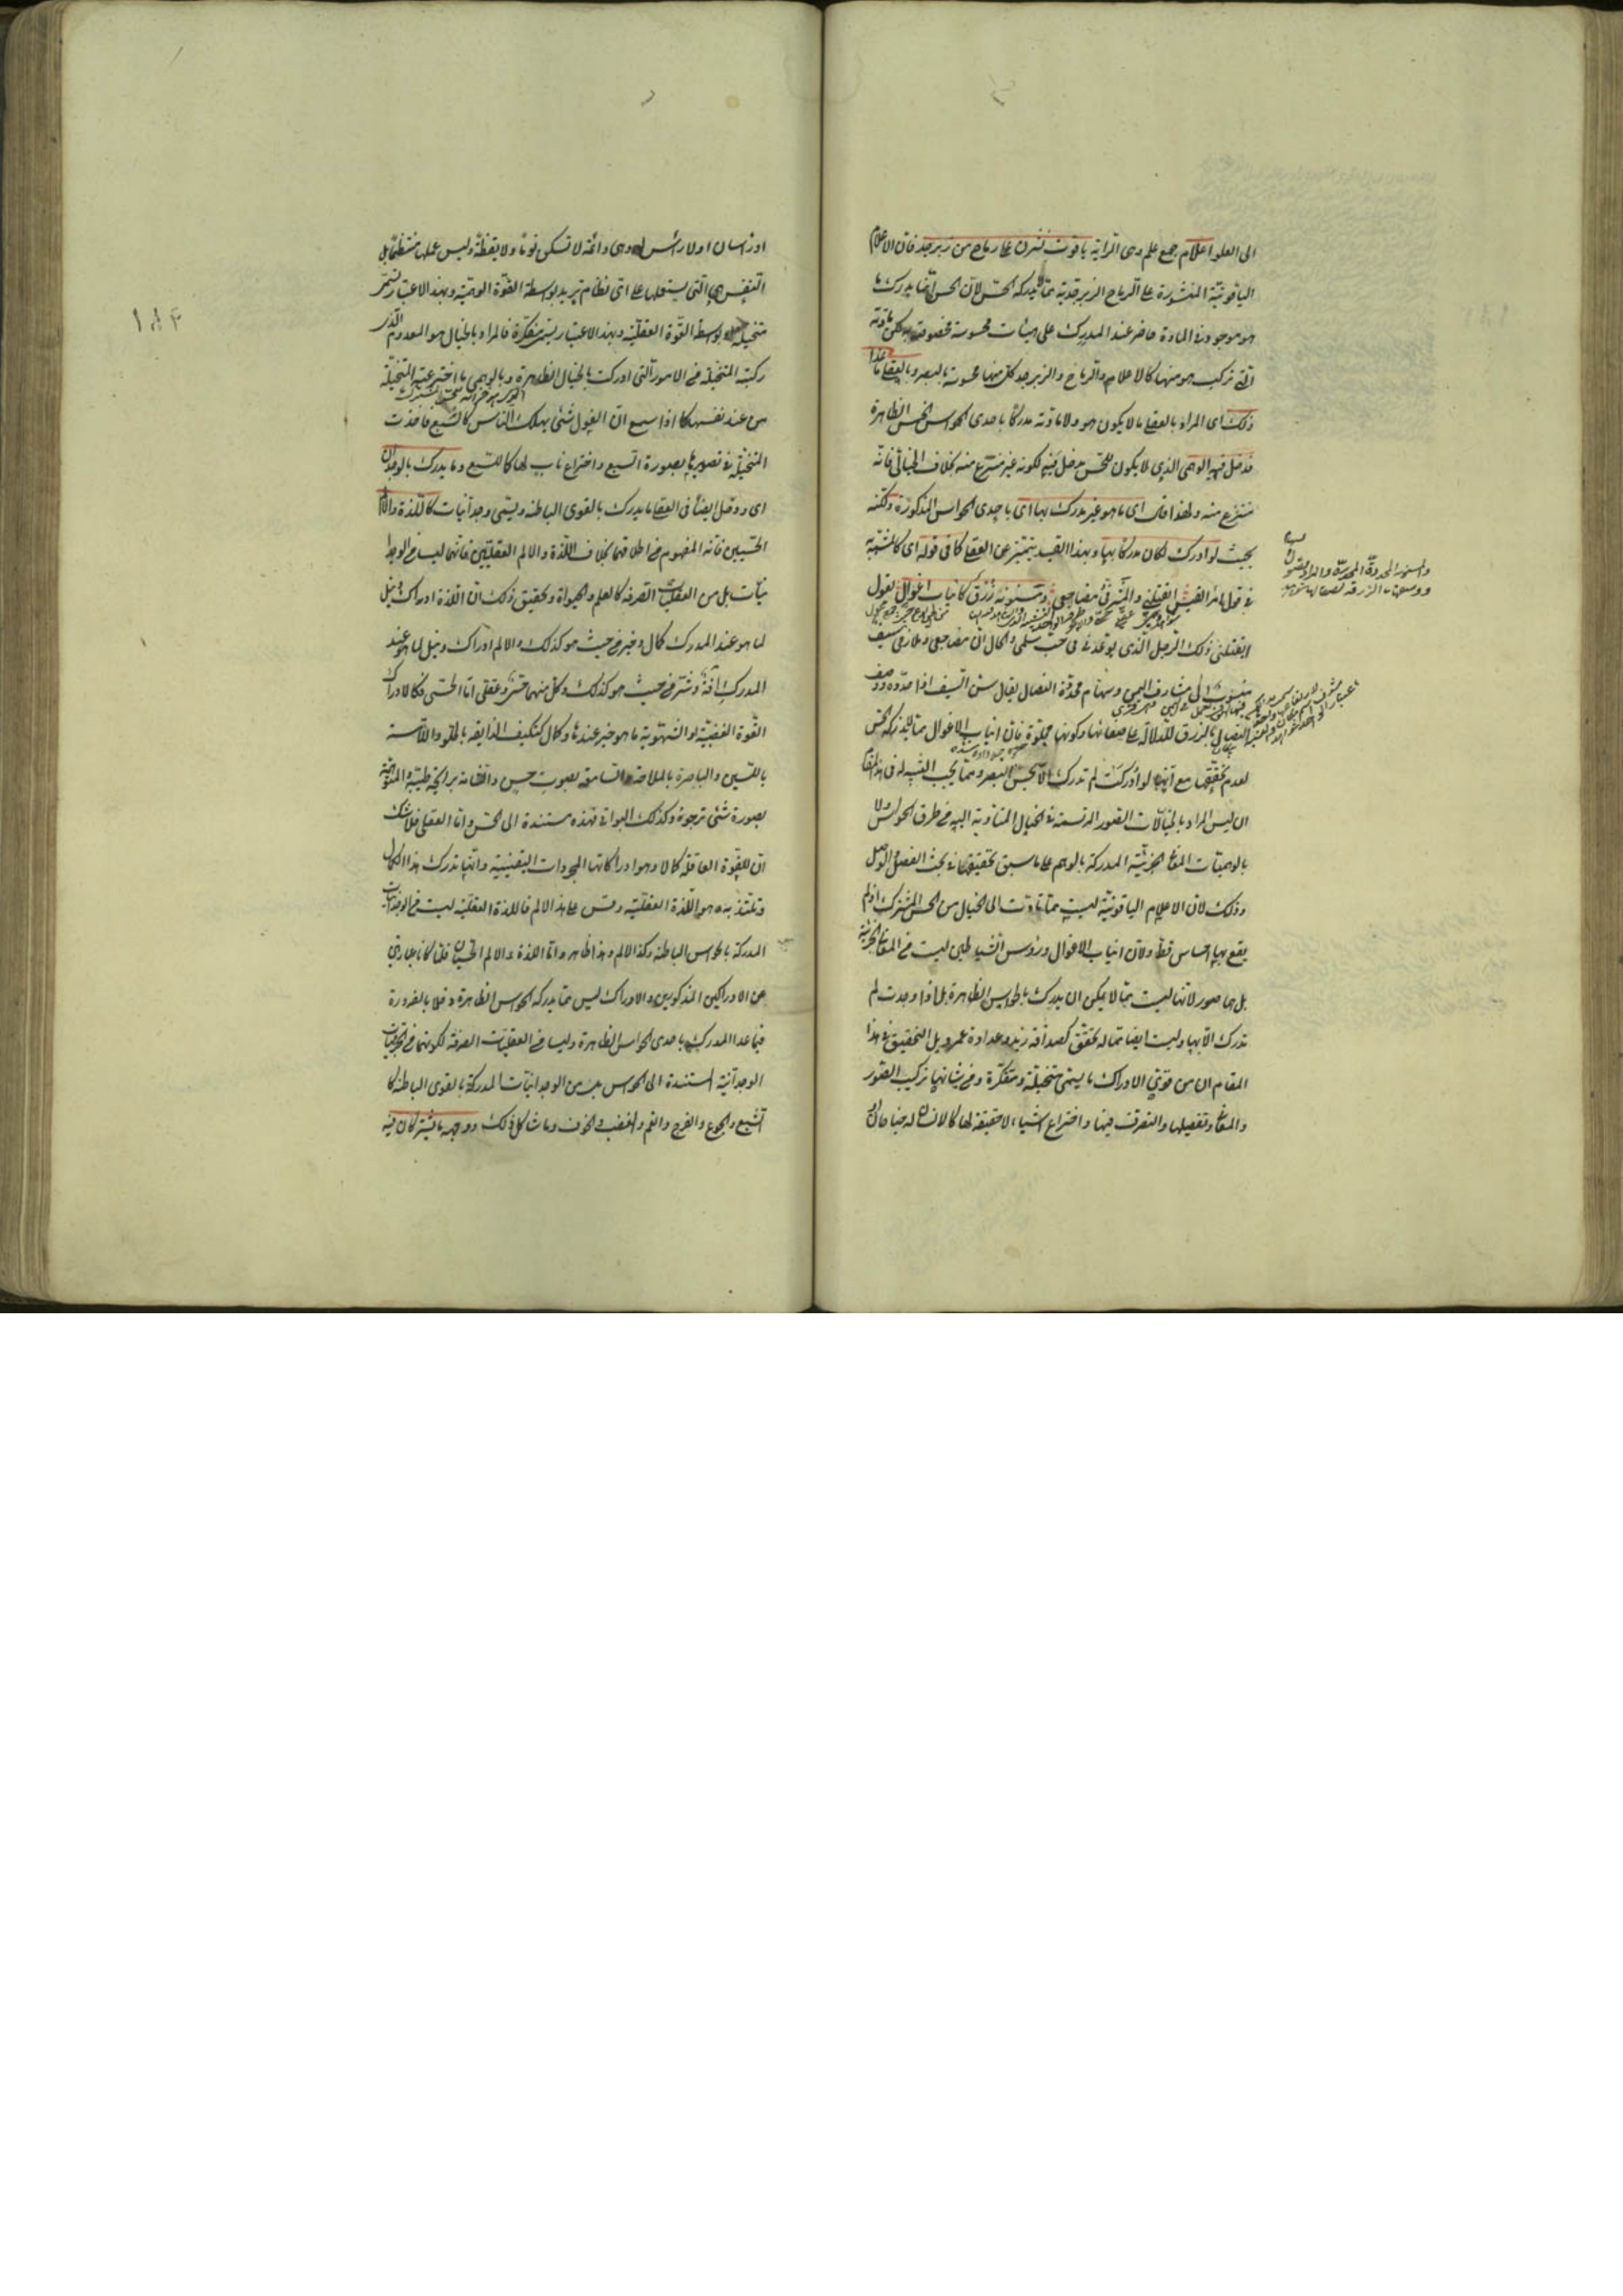 الى العلو اعلام جمع علم وهى الراية ياقوت نشرن على رماح من زبرجد فان الاعلام
الياقوتية المنشورة على الرماح الزبرجدية مما لا يدركه الحس لان الحس انما يدرك ما
هو موجود فى المادة حاضر عند المدرك على هيئات محسوسة مخصوصة لكن مادته
التى تركب هو منها كالاعلام والرماح والزبرجد كل منها محسوسة بالبصر وبالعقلى ما عدا
ذلك اى المراد بالعقلى ما لا يكون هو ولا مادته مدركا باحدى الحواس الخمس الظاهرة
فدخل فيه الوهمى الذى لا يكون للحس مدخل فيه لكونه غير منتزع منه بخلاف الخيالى فانه
منتزع منه ولهذا قال اى ما هو غير مدرك بها اى باحدى الحواس المذكورة ولكنه
بحيث لو ادرك لكان مدركا بها وبهذا القيد يتميز عن العقلى كما فى قوله اى كالمشبه به
فى قول امرء القيس ايقتلنى والمشرفى مضاجعى ومسنونة زرق كانياب اغوال يقول
ايقتلنى ذلك الرجل الذى يوعدنى فى حب سلمى والحال ان مضاجعى وملازمى سيف
منسوب الى مشارف اليمن وسهام محددة النصال يقال سن السيف اذا حدده ووصف
النصال بالزرق للدلالة على صفائها وكونها مجلوة فان انياب الاغوال مما لا يدركه الحس
لعدم تحققها مع انها لو ادركت لم تدرك الا بحس البصر ومما يجب التنبيه له فى هذا المقام
ان ليس المراد بالخياليات الصور المرتسمة فى الخيال المتادية اليه من طرق الحواس ولا
بالوهميات المعانى الجزئية المدركة بالوهم على ما سبق تحقيقها فى بحث الفصل والوصل
وذلك لان الاعلام الياقوتية ليست مما تأدت الى الخيال من الحس المشترك اذ لم
يقع بها احساس قط ولان انياب الاغوال ورؤس الشياطين ليست من المعانى الجزئية
بل هى صور لانها ليست مما لا يمكن ان يدرك بالحواس الظاهرة بل اذا وجدت لم
تدرك الا بها وليست ايضا مما له تحقق كصداقة زيد وعداوة عمرو بل التحقيق فى هذا
المقام ان من قوى الادراك ما يسمى متخيلة ومفكرة ومن شانها تركيب الصور
والمعانى وتفصيلها والتصرف فيها واختراع اشياء لا حقيقة لها كالانسان له جناحان او
او رأسان او لا رأس له وهى دائمة لا تسكن نوما ولا يقظة وليس عملها منتظما بل
النفس هى التى يستعملها على اى نظام تريد بواسطة القوة الوهمية وبهذا الاعتبار تسمى
متخيلة او بواسطة القوة العقلية وبهذا الاعتبار تسمى مفكرة فالمراد بالخيال هو المعدوم الذى
ركبته المتخيلة من الامور التى ادركت بالحواس الظاهرة وبالوهمى ما اخترعته المتخيلة
من عند نفسها كما اذا سمع ان الغول شئ يهلك الناس كالسبع فاخذت
المتخيلة فى تصويرها بصورة السبع واختراع ناب لها كما للسبع وما يدرك بالوجدان
اى ودخل ايضا فى العقلى ما يدرك بالقوى الباطنة ويسمى وجدانيات كاللذة والالم
الحسيين فانه المفهوم من اطلاقهما بخلاف اللذة والالم العقليين فانهما ليسا من الوجدا
نيات بل من العقليات الصرفة كالعلم والحيوة وتحقيق ذلك ان اللذة ادراك ونيل
لما هو عند المدرك كمال وخير من حيث هو كذلك والالم ادراك ونيل لما هو عند
المدرك آفة وشر من حيث هو كذلك وكل منهما حسى وعقلى اما الحسى فكادراك
القوة الغضبية او الشهوية ما هو خير عندها وكمال كتكيف الذايقة بالحلو واللامسة
باللين والباصرة بالملاحة والسامعة بصوت حسن والشامة برايحة طيبة والمتوهمة
بصورة شئ ترجوه وكذلك البواقى فهذه مستندة الى الحس واما العقلى فلا شك
ان للقوة العاقلة كمالا وهو ادراكاتها المجردات اليقينية وانها تدرك هذا الكمال
وتلتذ به وهو اللذة العقلية وقس على هذا الالم فاللذة العقلية ليست من الوجدانيات
المدركة بالحواس الباطنة وكذا الالم وهذا ظاهر واما اللذة والالم الحسيان فلما كانا عبارتين
عن الادراكين المذكورين والادراك ليس مما يدركه الحواس الظاهرة دخلا بالضرورة
فيما عدا المدرك باحدى الحواس الظاهرة وليسا من العقليات الصرفة لكونهما من الجزئيات
المستندة الى الحواس بل من الوجدانيات المدركة بالقوى الباطنة كا
لشبع والجوع والفرح والغم والغضب والخوف وما شاكل ذلك ووجهه ما يشتركان فيه